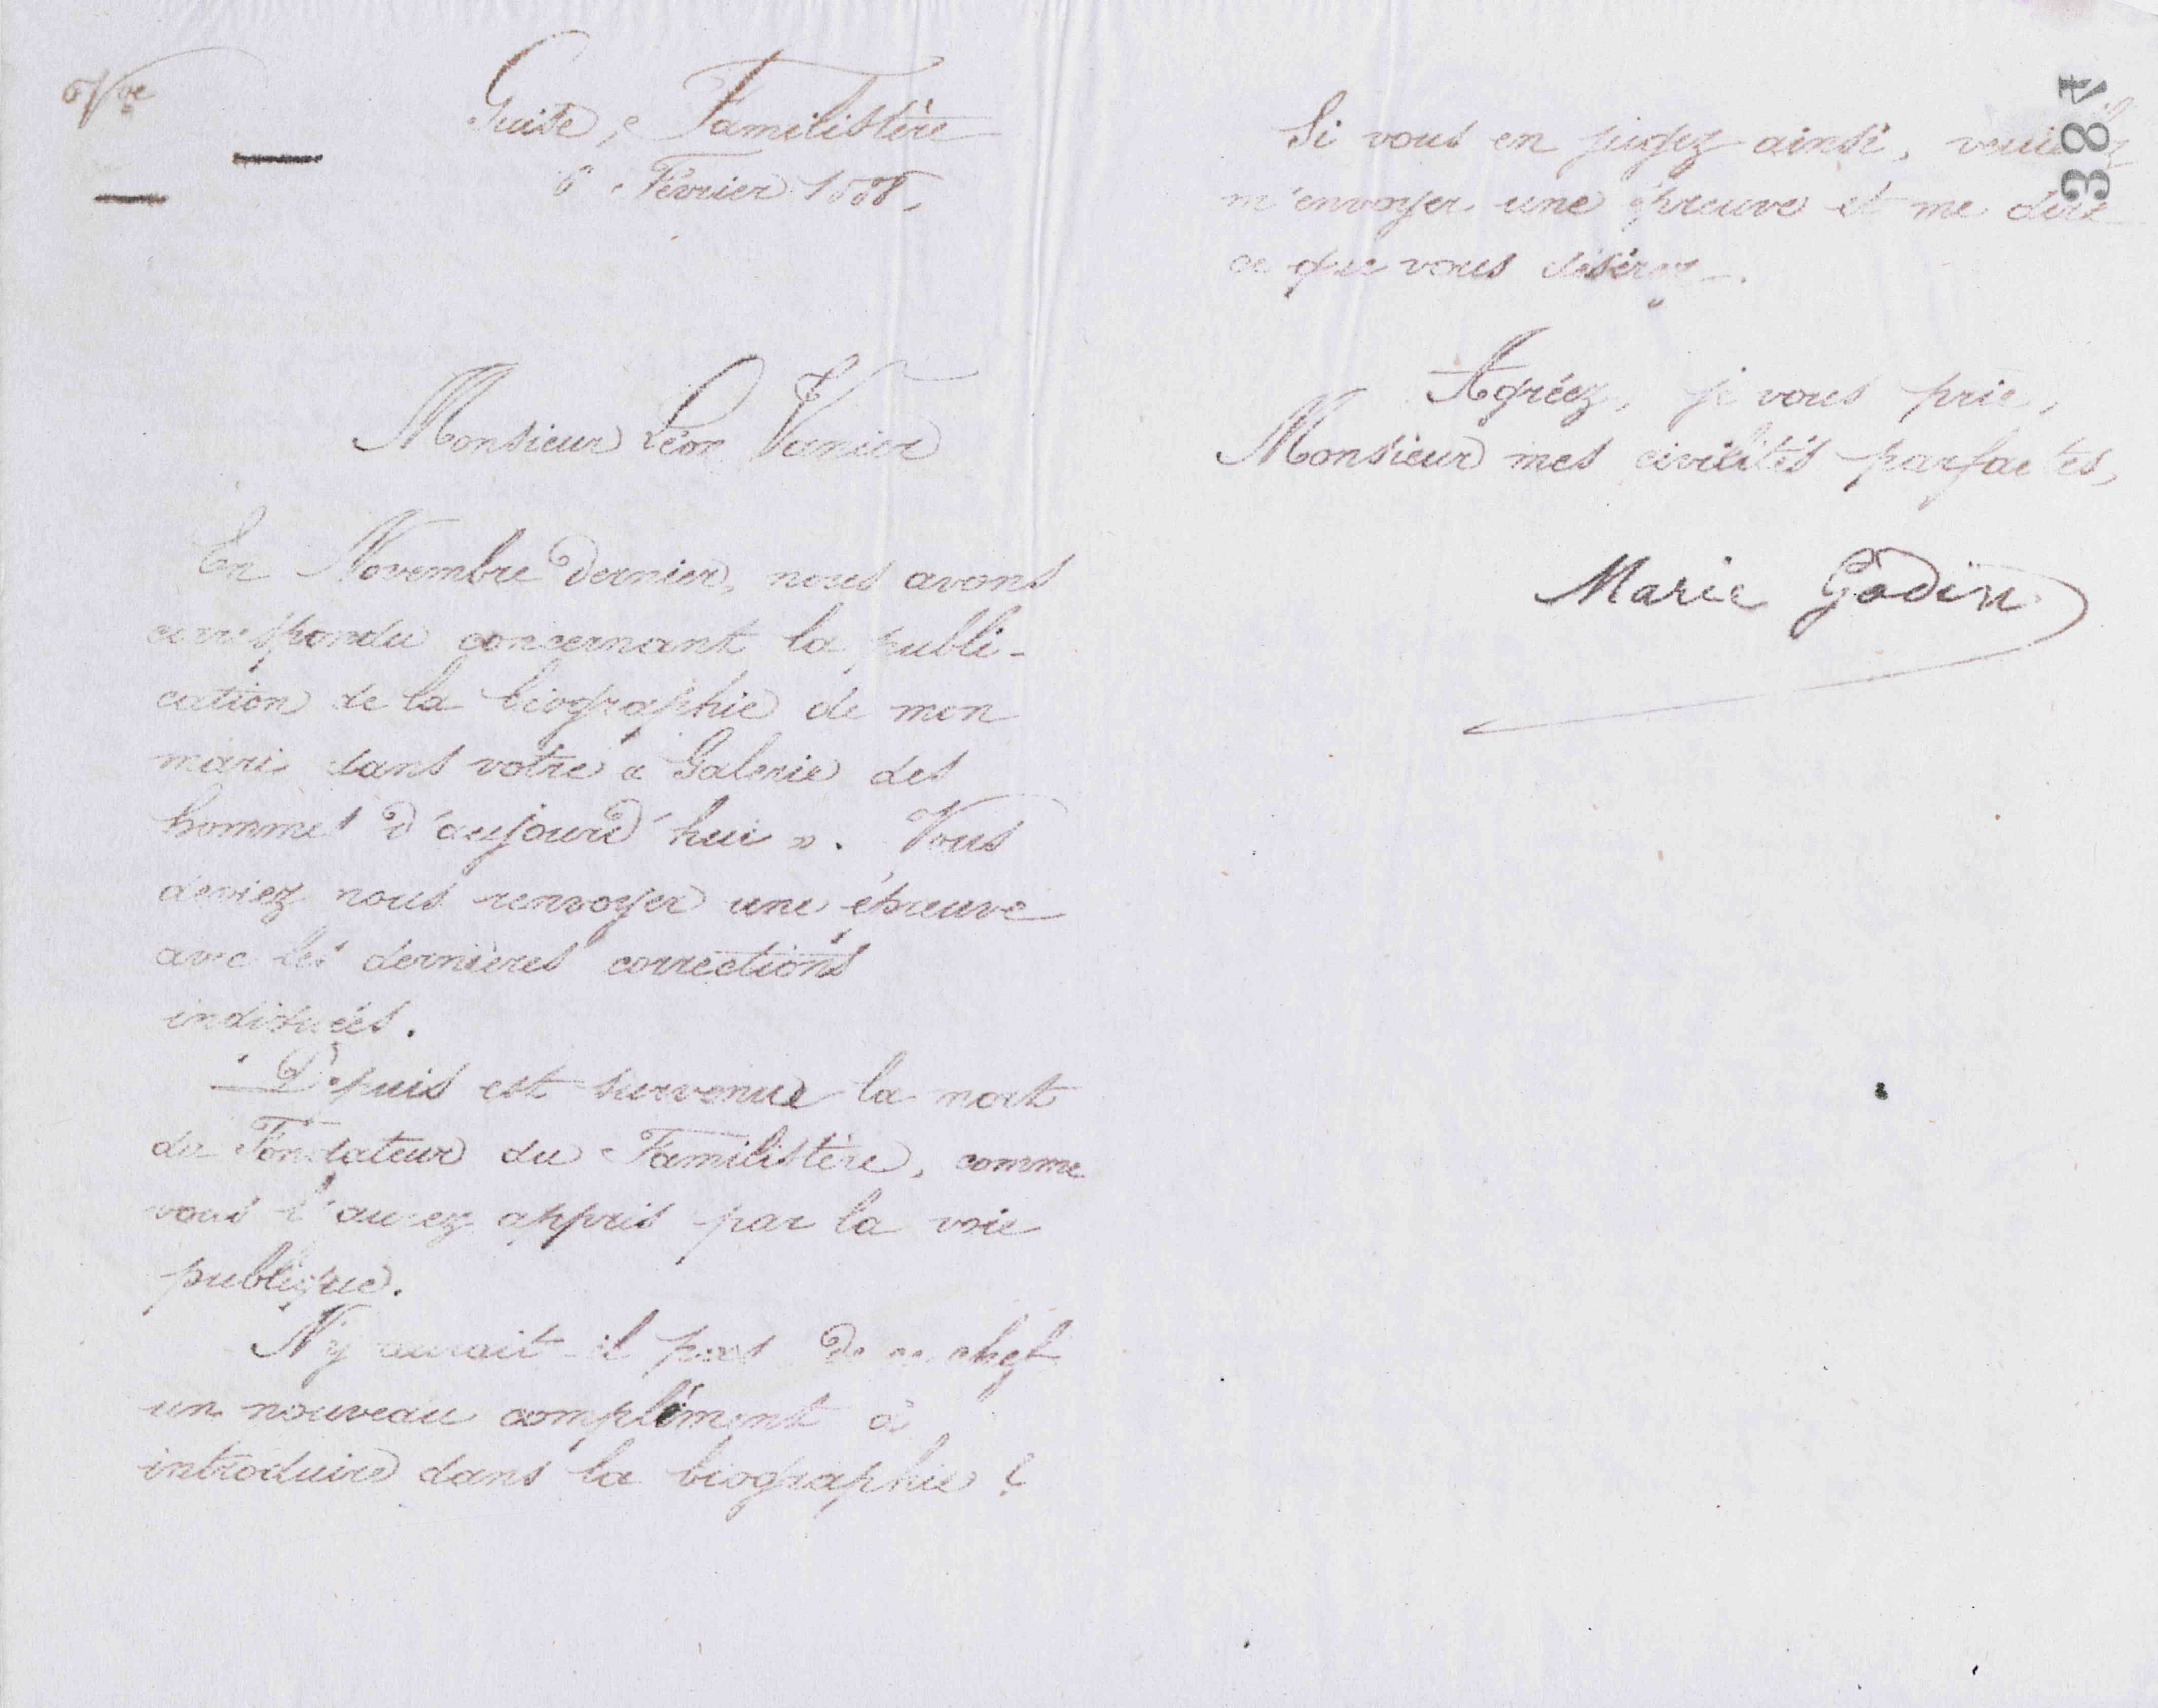 Guise, Familistère
6 Février 1888,
Monsieur Léon Vanier
En Novembre dernier, nous avons
correspondu concernant la publi-
cation de la biographie de mon
mari dans votre « Galerie des
hommes d'aujourd'hui ». Vous
deviez nous renvoyer une épreuve
avec les dernières corrections
indiquées.
Depuis est survenue la mort
du Fondateur du Familistère, comme
vous l'aurez appris par la voie
publique.
N'y aurait-il pas de ce chef
un nouveau complément à
introduire dans la biographie ?
384
Si vous en jugez ainsi, veuillez
m'envoyer une épreuve et me dire
ce que vous désirez.
Agréez, je vous prie,
Monsieur mes civilités parfaites,
Marie Godin